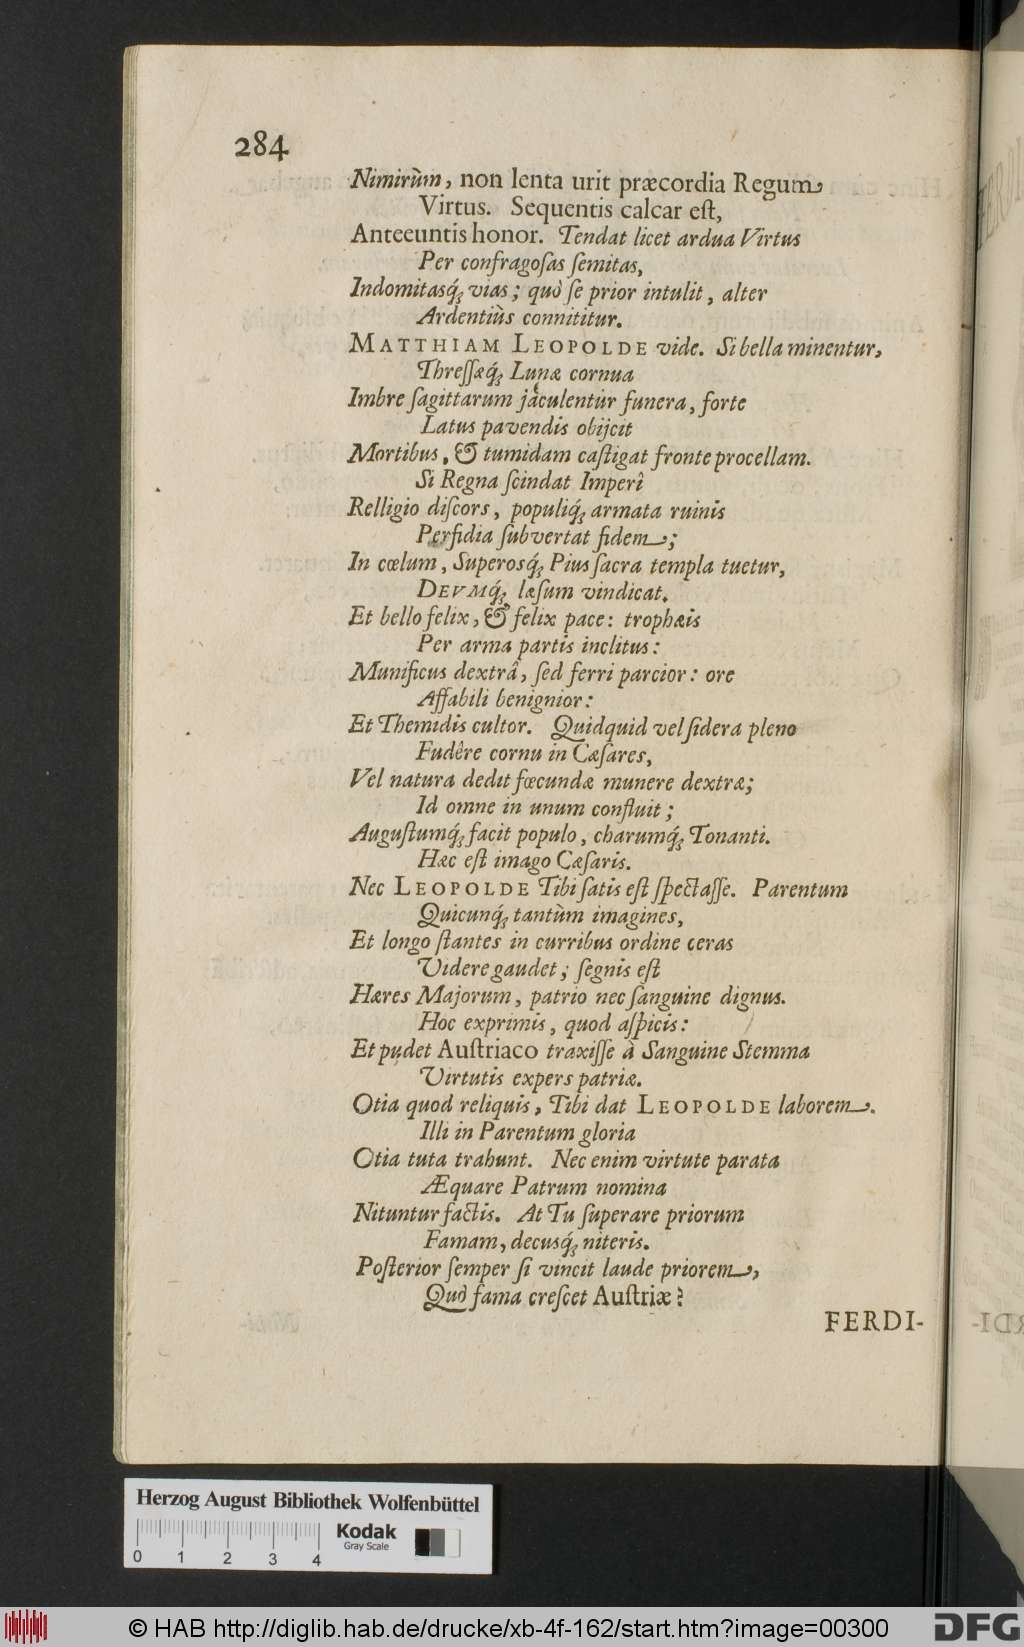 284
Nimirùm, non lenta urit præcordia Regum
Virtus. Sequentis calcar eſt,
Anteeuntis honor. Tendat licet ardua Virtus
Per confragoſas ſemitas,
Indomitasq́; vias; quò ſe prior intulit, alter
Ardentiùs connititur.
MATTHIAM LEOPOLDE vide. Si bella minentur,
Threſſæq́; Lunæ cornua
Imbre ſagittarum jaculentur funera, forte
Latus pavendis obijcit
Mortibus, & tumidam caſtigat fronte procellam.
Si Regna ſcindat Imperî
Relligio diſcors, populiq́; armata ruinis
Perfidia ſubvertat fidem;
In cœlum, Superosq́; Pius ſacra templa tuetur,
DEVMq́; læſum vindicat.
Et bello felix, & felix pace: trophæis
Per arma partis inclitus:
Munificus dextrâ, ſed ferri parcior: ore
Affabili benignior:
Et Themidis cultor. Quidquid vel ſidera pleno
Fudêre cornu in Cæſares,
Vel natura dedit fœcundæ munere dextræ;
Id omne in unum confluit;
Auguſtumq́; facit populo, charumq́; Tonanti.
Hæc eſt imago Cæſaris.
Nec LEOPOLDE Tibi ſatis eſt ſpectaſſe. Parentum
Quicunq́; tantùm imagines,
Et longo ſtantes in curribus ordine ceras
Videre gaudet; ſegnis eſt
Hæres Majorum, patrio nec ſanguine dignus.
Hoc exprimis, quod aſpicis:
Et pudet Auſtriaco traxiſſe à Sanguine Stemma
Virtutis expers patriæ.
Otia quod reliquis, Tibi dat LEOPOLDE laborem.
Illi in Parentum gloria
Otia tuta trahunt. Nec enim virtute parata
Æquare Patrum nomina
Nituntur factis. At Tu ſuperare priorum
Famam, decusq́; niteris.
Poſterior ſemper ſi vincit laude priorem,
Quò fama creſcet Auſtriæ?
FERDI-
Herzog August Bibliothek Wolfenbüttel
Kodak
Gray Scale
0 1 2 3 4
© HAB http://diglib.hab.de/drucke/xb-4f-162/start.htm?image=00300
DFG